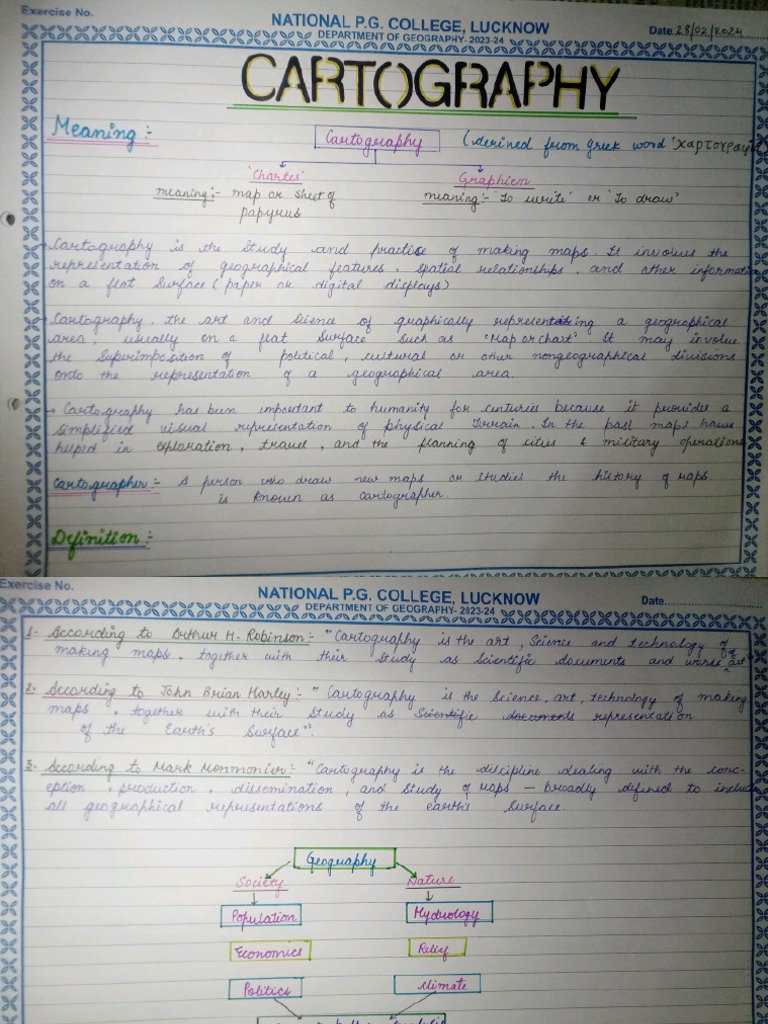 Exercise No.
NATIONAL P.G. COLLEGE, LUCKNOW
DEPARTMENT OF GEOGRAPHY- 2023-24
Date 28/02/2024
CARTOGRAPHY
Meaning :-
Cartography (derined from greek word 'χαρτογραφ
'Chartes' Graphien
meaning:- map or sheet of papyrus
meaning:- 'To write' or 'To draw'
Cartography is the study and practise of making maps. It involves the
representation of geographical features, spatial relationships, and other information
on a flat surface (paper or digital displays)
Cartography, the art and science of graphically representing a geographical
area, usually on a flat surface such as 'Map or chart'. It may involve
the superimposition of political, cultural or other nongeographical divisions
onto the representation of a geographical area.
→ Cartography has been important to humanity for centuries because it provides a
simplified visual representation of physical Terrain. In the past maps have
helped in exploration, travel, and the planning of cities & military operations
Cartographer:- A person who draw new maps or studies the history of maps
is known as cartographer.
Definition :-
Exercise No.
NATIONAL P.G. COLLEGE, LUCKNOW
DEPARTMENT OF GEOGRAPHY- 2023-24
Date
1- According to Arthur H. Robinson:- "Cartography is the art, Science and technology of
making maps, together with their study as Scientific documents and works of art"
2- According to John Brian Harley:- "Cartography is the Science, art, technology of making
maps, together with their study as Scientific documents representation
of the Earth's Surface".
3- According to Mark Monmonier:- "Cartography is the discipline dealing with the conc-
eption, production, dissemination, and study of maps – broadly defined to include
all geographical representations of the earth's surface.
Geography
Society Nature
Population Hydrology
Economics Relief
Politics climate